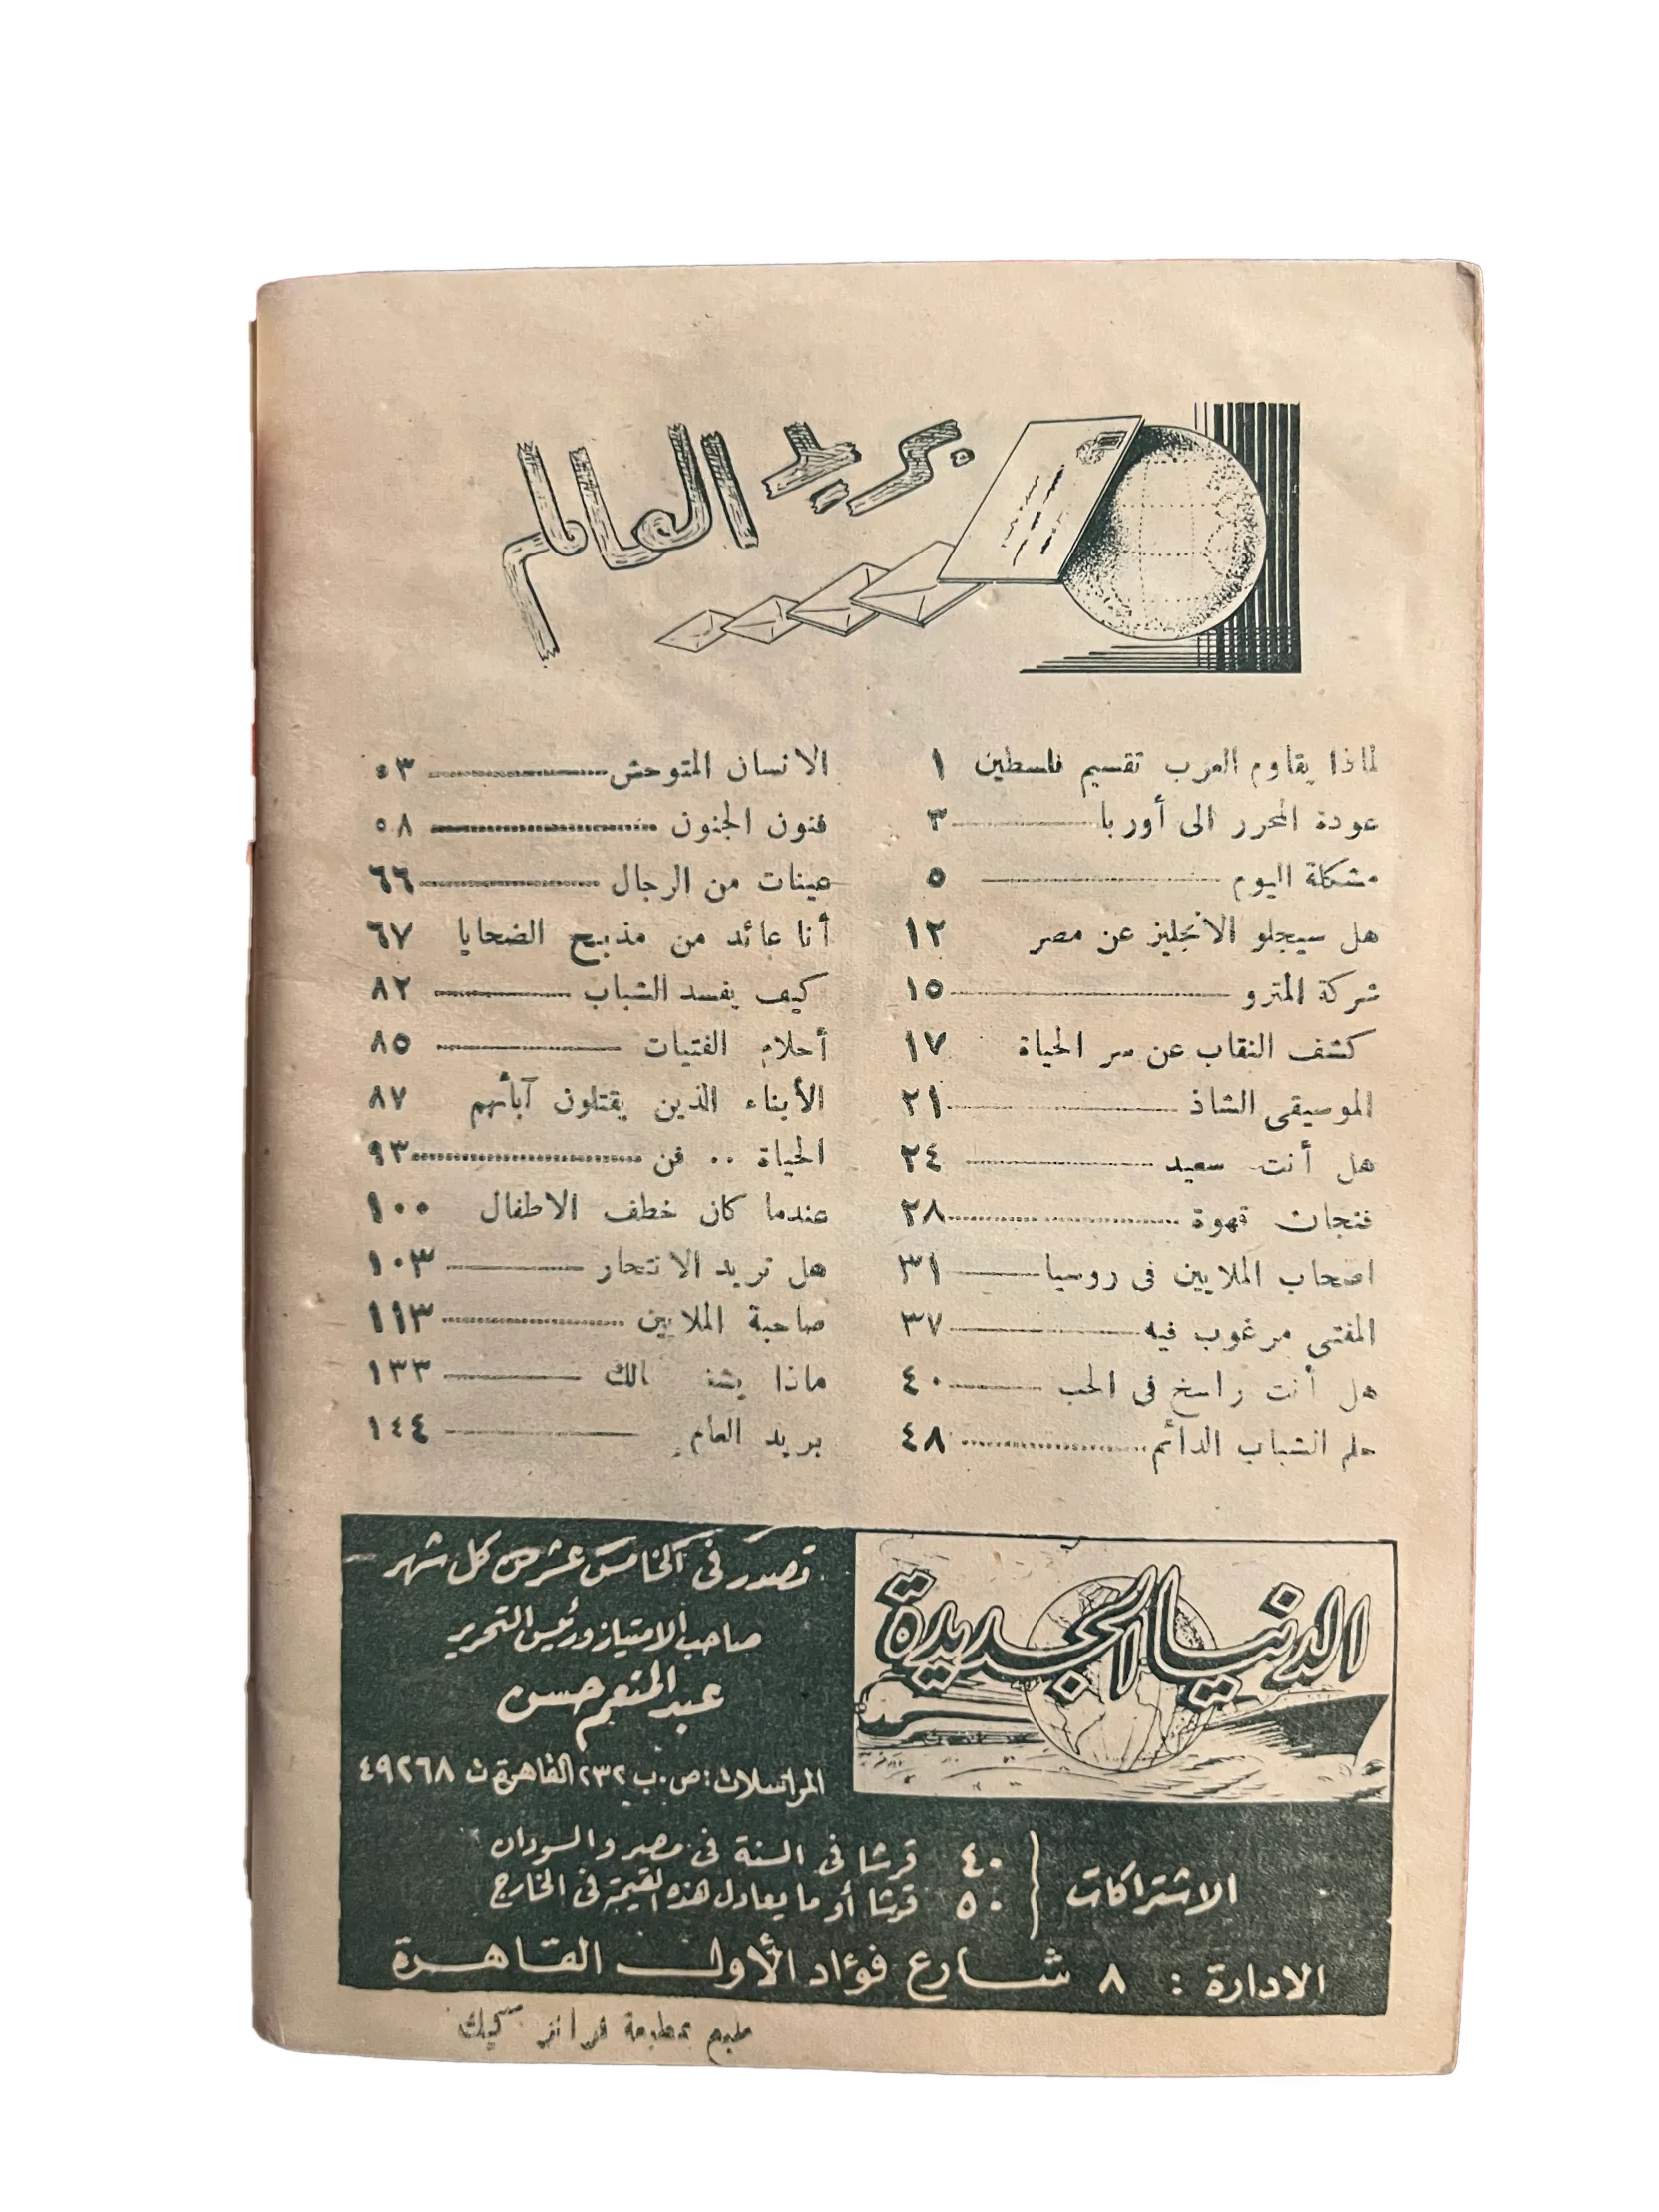 بريد العالم
لماذا يقاوم العرب تقسيم فلسطين ١
عودة المحرر الى أوربا ٣
مشكلة اليوم ٥
هل سيجلو الانجليز عن مصر ١٢
شركة المترو ١٥
كشف النقاب عن سر الحياة ١٧
الموسيقى الشاذ ٢١
هل أنت سعيد ٢٤
فنجان قهوة ٢٨
اصحاب الملايين فى روسيا ٣١
المفتى مرغوب فيه ٣٧
هل أنت راسخ فى الحب ٤٠
حلم الشباب الدائم ٤٨
الانسان المتوحش ٥٣
فنون الجنون ٥٨
عينات من الرجال ٦٦
أنا عائد من مذبح الضحايا ٦٧
كيف يفسد الشباب ٨٢
أحلام الفتيات ٨٥
الأبناء الذين يقتلون آبائهم ٨٧
الحياة .. فن ٩٣
عندما كان خطف الاطفال ١٠٠
هل تريد الانتحار ١٠٣
صاحبة الملايين ١١٣
ماذا بالك ١٣٣
بريد العام ١٤٤
الدنيا الجديدة
تصدر فى الخامس عشر من كل شهر
صاحب الامتياز ورئيس التحرير
عبد المنعم حسن
المراسلات : ص . ب ٢٣٢ القاهرة ت ٤٩٢٦٨
الاشتراكات
٤٠ قرشا فى السنة فى مصر والسودان
٥٠ قرشا أو ما يعادل هذه القيمة فى الخارج
الادارة : ٨ شارع فؤاد الأول القاهرة
طبع بمطبعة